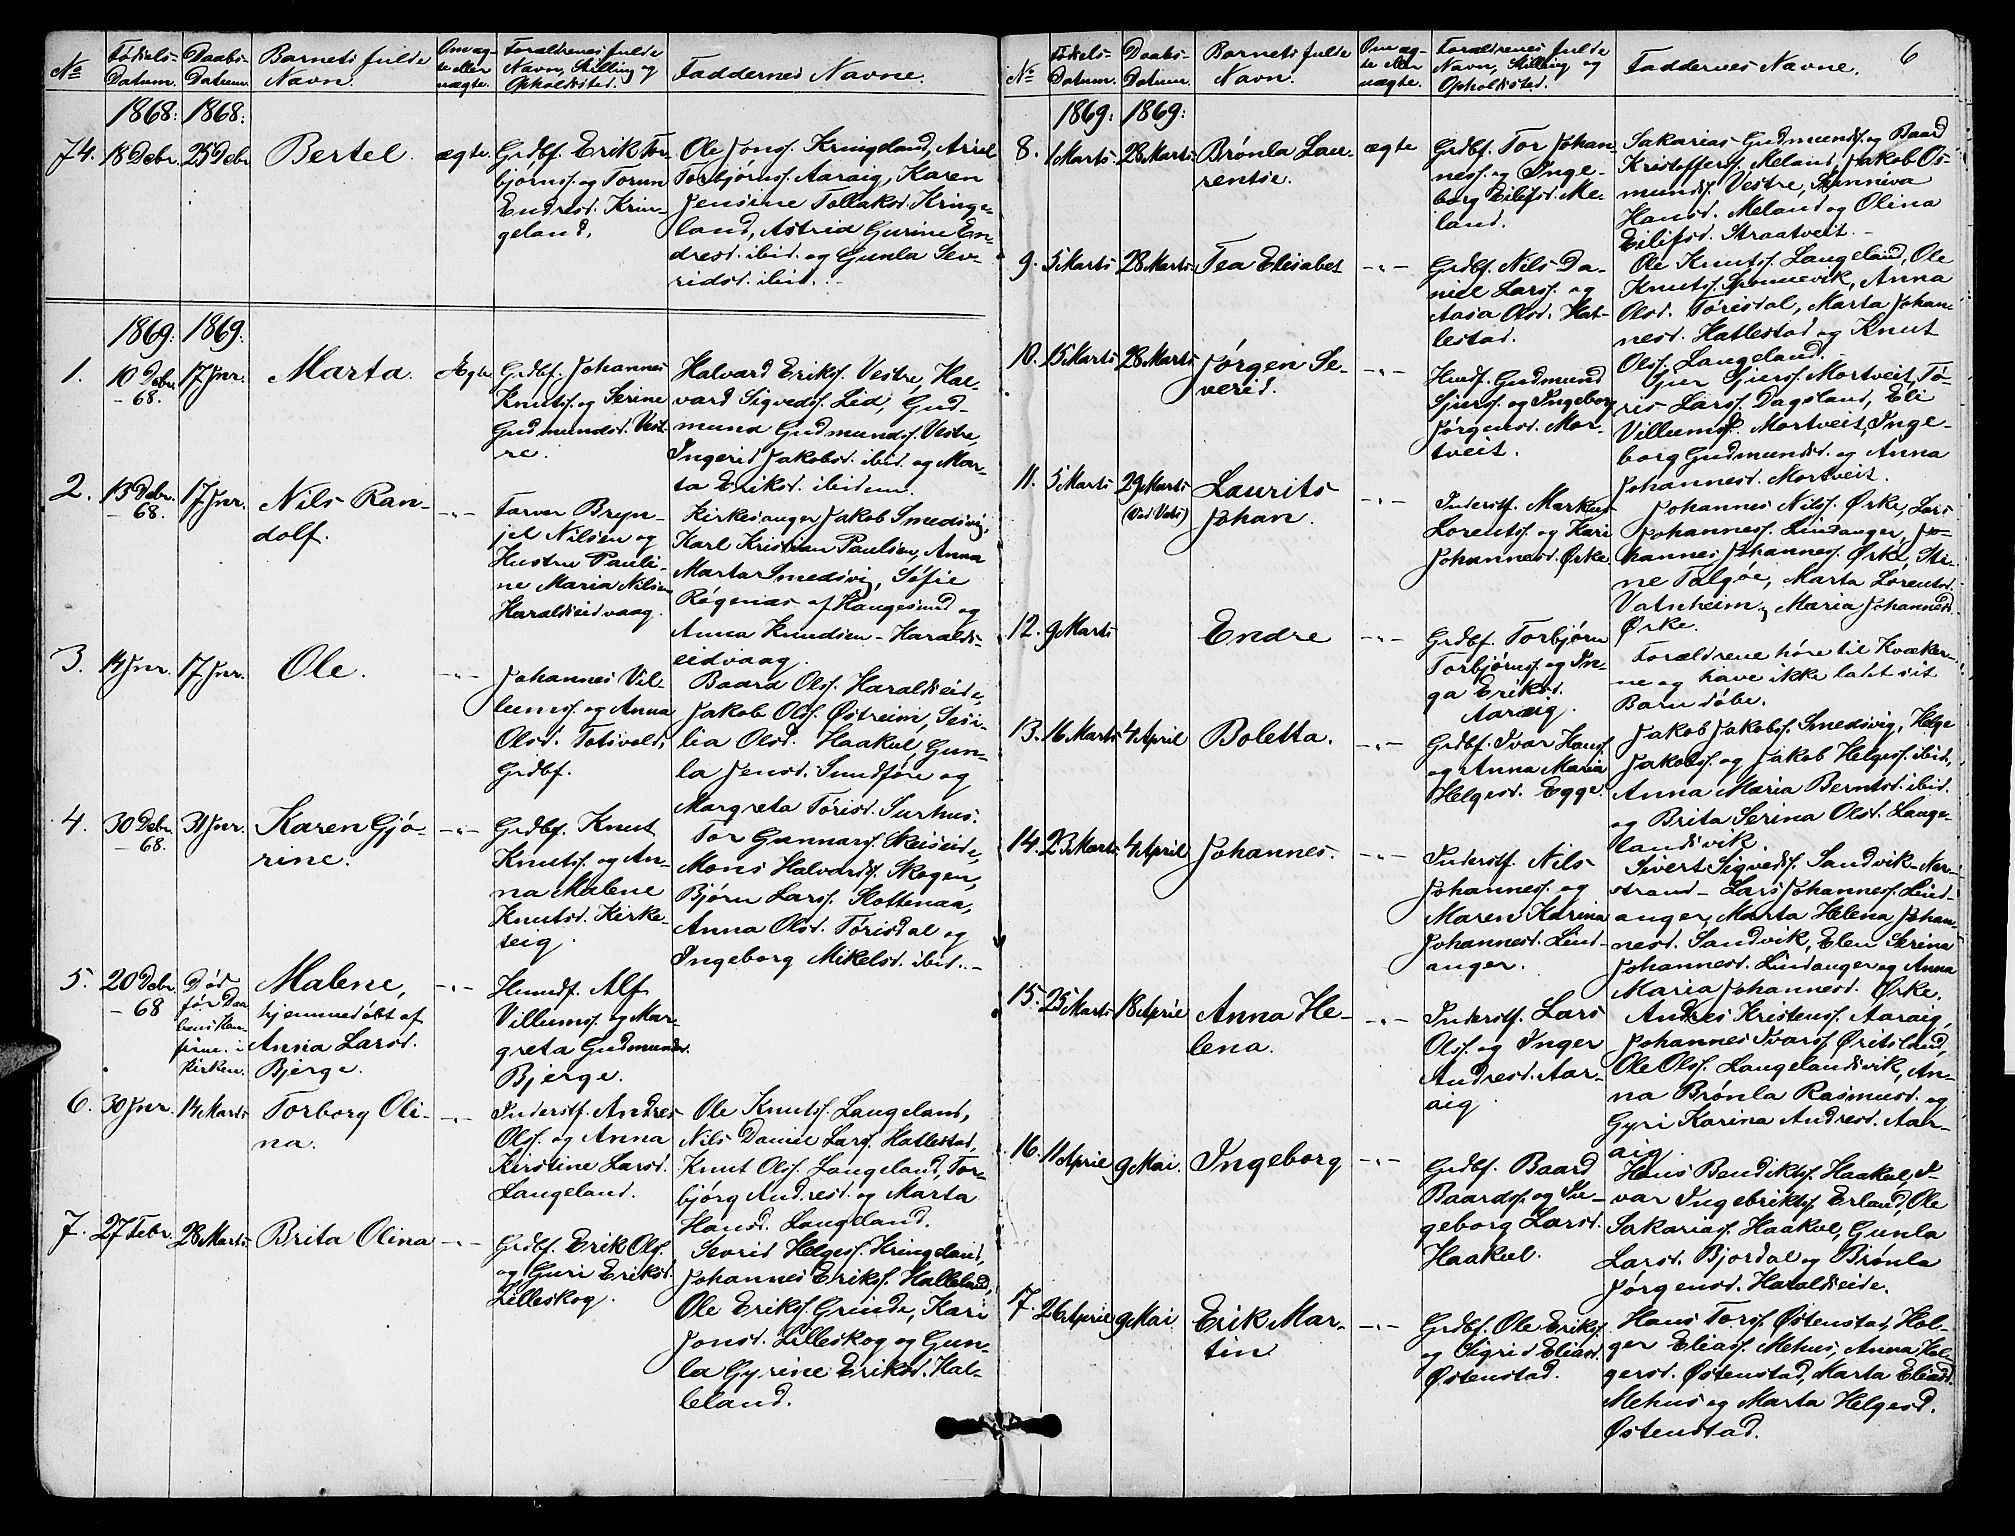 No
Fødsels-
Datum.
Daabs-
Datum.
Barnets fulde
Navn.
Om æg-
te eller
uægte.
Forældrenes fulde
Navn, Stilling og
Opholdssted.
Faddernes Navne.
1868: 1868:
74. 18 Debr. 25 Debr. Bertel. ægte.
Grdbf. Erik Tor-
bjørnss. og Torun
Endresd. Krin-
geland.
Ole Jonss. Kringeland,
Torbjørnss. Aaraig, Karen
Jensine Tollaksd. Kringe-
land, Astrid Gurine En-
dresd. ibid. og Gunla Sev-
ridsd. ibid.
1869: 1869:
1. 10 Debr. 68. 17 Jnr. Marta. Ægte
Grdbf. Johannes
Knutss. og Serine
Gudmundsd. Vest-
re.
Halvard Erikss. Vestre, Hal-
vard Sigvedss. Lid, Gud-
mund Gudmundss. Vestre,
Ingerid Jakobsd. ibid. og Mar-
ta Eriksd. ibidem.
2. 13 Debr. 68. 17 Jnr. Nils Ran-
dolf. -"-
Farver Bryn-
jel Nilsen og
Hustru Pauli-
ne Maria Nilsen
Haraldseidvaag.
Kirkesanger Jakob Smedsvig,
Karl Kristian Paulsen, Anna
Marta Smedsvig, Sofie
Røgenæs af Haugesund og
Anna Knudsen - Haralds-
eidvaag.
3. 14 Jnr. 17 Jnr. Ole. -"-
Johannes Vil-
lumss. og Anna
Olsd. Totsvold,
Grdbf.
Baard Olss. Haraldseide,
Jakob Olss. Østreim, Sesi-
lia Olsd. Haakul, Gun-
la Jensd. Sundføre og
Margreta Torisd. Surhus.
4. 30 Debr. 68. 31 Jnr. Karen Gjø-
rine. -"-
Grdbf. Knut
Knutss. og An-
na Malene
Knutsd. Kirke-
teig.
Tor Gunnarss. Skeiseide,
Mons Halvardss. Skogen,
Bjørn Larss. Slottenaa,
Anna Olsd. Torisdal og
Ingeborg Mikelsd. ibid. -
5. 20 Debr. 68
Død
før Daa-
bens
i
Kirken.
Malene,
hjemmedøbt af
Anna Larsd.
Bjerge. -"-
Husmf. Alf
Villumss. og Mar-
greta Gudmundsd.
Bjerge.
6. 30 Jnr. 14 Marts Torborg Oli-
na. -"-
Inderstf. Andres
Olss. og Anna
Kirstine Larsd.
Langeland.
Ole Knutss. Langeland,
Nils Daniel Larss. Hatlestad,
Knut Olss. Langeland, Tor-
bjørg Andresd. og Marta
Hansd. Langeland.
7. 27 Febr. 28 Marts Brita Olina -"-
Grdbf. Erik Olss.
og Guri Eriksd.
Lilleskog.
Sevrid Helgess. Kringeland,
Johannes Erikss. Halleland,
Ole Erikss. Grinde, Kari
Jonsd. Lilleskog og Gun-
la Gyrine Eriksd. Hal-
leland.
6
No
Fødsels-
Datum.
Daabs-
Datum.
Barnets fulde
Navn.
Om æg-
te eller
uægte.
Forældrenes fulde
Navn, Stilling og
Opholdssted.
Faddernes Navne.
1869: 1869:
8. 1 Marts 28 Marts Brønla Lau-
rentse. ægte
Grdbf. Tor Johan-
ness. og Inge-
borg Eilifsd. Me-
land.
Sakarias Gudmundss. og Baard
Kristofferss. Meland, Jakob Os-
mundss. Vestre, Synneva
Hansd. Meland og Olina
Eilifsd. Straatveit.
9. 5 Marts 28 Marts Tea Elisabet -"-
Grdbf. Nils Da-
niel Larss. og
Aasa Olsd. Hat-
lestad.
Ole Knutss. Langeland, Ole
Knutss. Sponnevik, Anna
Olsd. Torisdal, Marta Johan-
nesd. Hatlestad og Knut
Olss. Langeland.
10. 15 Marts 28 Marts Jørgen Se-
verid. -"-
Husmf. Gudmund
Sjurss. og Ingeborg
Jørgensd. Mor-
tveit.
Sjur Sjurss. Mortveit, Tø-
ris Larss. Dagsland, Eli
Villumsd. Mortveit, Inge-
borg Gudmundsd. og Anna
Johannesd. Mortveit.
11. 5 Marts 29 Marts
(Vid Vats)
Laurits
Johan. -"-
Inderstf. Markus
Lorentss. og Kari
Johannesd. Ørke
Johannes Nilss. Ørke, Lars
Johanness. Lindanger, Jo-
hannes Johanness. Ørke, Sti-
ne Talgøe, Marta Lorentsd.
Vatnheim, Maria Johannesd.
Ørke.
12. 9 Marts Endre -"-
Grdbf. Torbjørn
Torbjørnss. og In-
ga Eriksd.
Aaraig.
Forældrene høre til Kvæker-
ne og have ikke ladet sit
Barn døbe.
13. 16 Marts 4 April Boletta. -"-
Grdbf. Ivar Hanss.
og Anna Maria
Helgesd. Egge.
Jakob Jakobss. Smedsvig, Helge
Jakobss. og Jakob Helgess. ibid.,
Anna Maria Berntsd. ibid.
og Brita Serina Olsd. Lange-
landsvik.
14. 23 Marts 4 April Johannes. -"-
Inderstf. Nils
Johanness. og
Maren Karina
Johannesd. Lind-
anger.
Sivert Sigvedss. Sandvik - Ner-
strand - Lars Johanness. Lind-
anger, Marta Helena Johan-
nesd. Sandvik, Elen Serina
Johannesd. Lindanger og Anna
Maria Johannesd. Ørke.
15. 25 Marts 18 April Anna He-
lena. -"-
Inderstf. Lars
Olss. og Inger
Andresd. Aar-
aig.
Andres Kristenss. Aaraig,
Johannes Ivarss. Øritsland,
Ole Olss. Langelandsvik, An-
na Brønla Rasmusd. og
Gyri Karina Andresd. Aar-
aig.
16. 11 April 9 Mai. Ingeborg -"-
Grdbf. Baard
Baardss. og In-
geborg Larsd.
Haakul.
Hans Bendiktss. Haakul, I-
var Ingebriktss. Erland, Ole
Sakariass. Haakul, Gunla
Larsd. Bjordal og Brønla
Jørgensd. Haraldseide.
17. 26 April 9 Mai Erik Mar-
tin -"-
Grdbf. Ole Erikss.
og Sigrid Eliasd.
Østenstad.
Hans Torss. Østenstad, Hol-
ger Eliass. Mehus, Anna Hol-
gersd. Østenstad, Marta Eliasd.
Mehus og Marta Helgesd.
Østenstad.